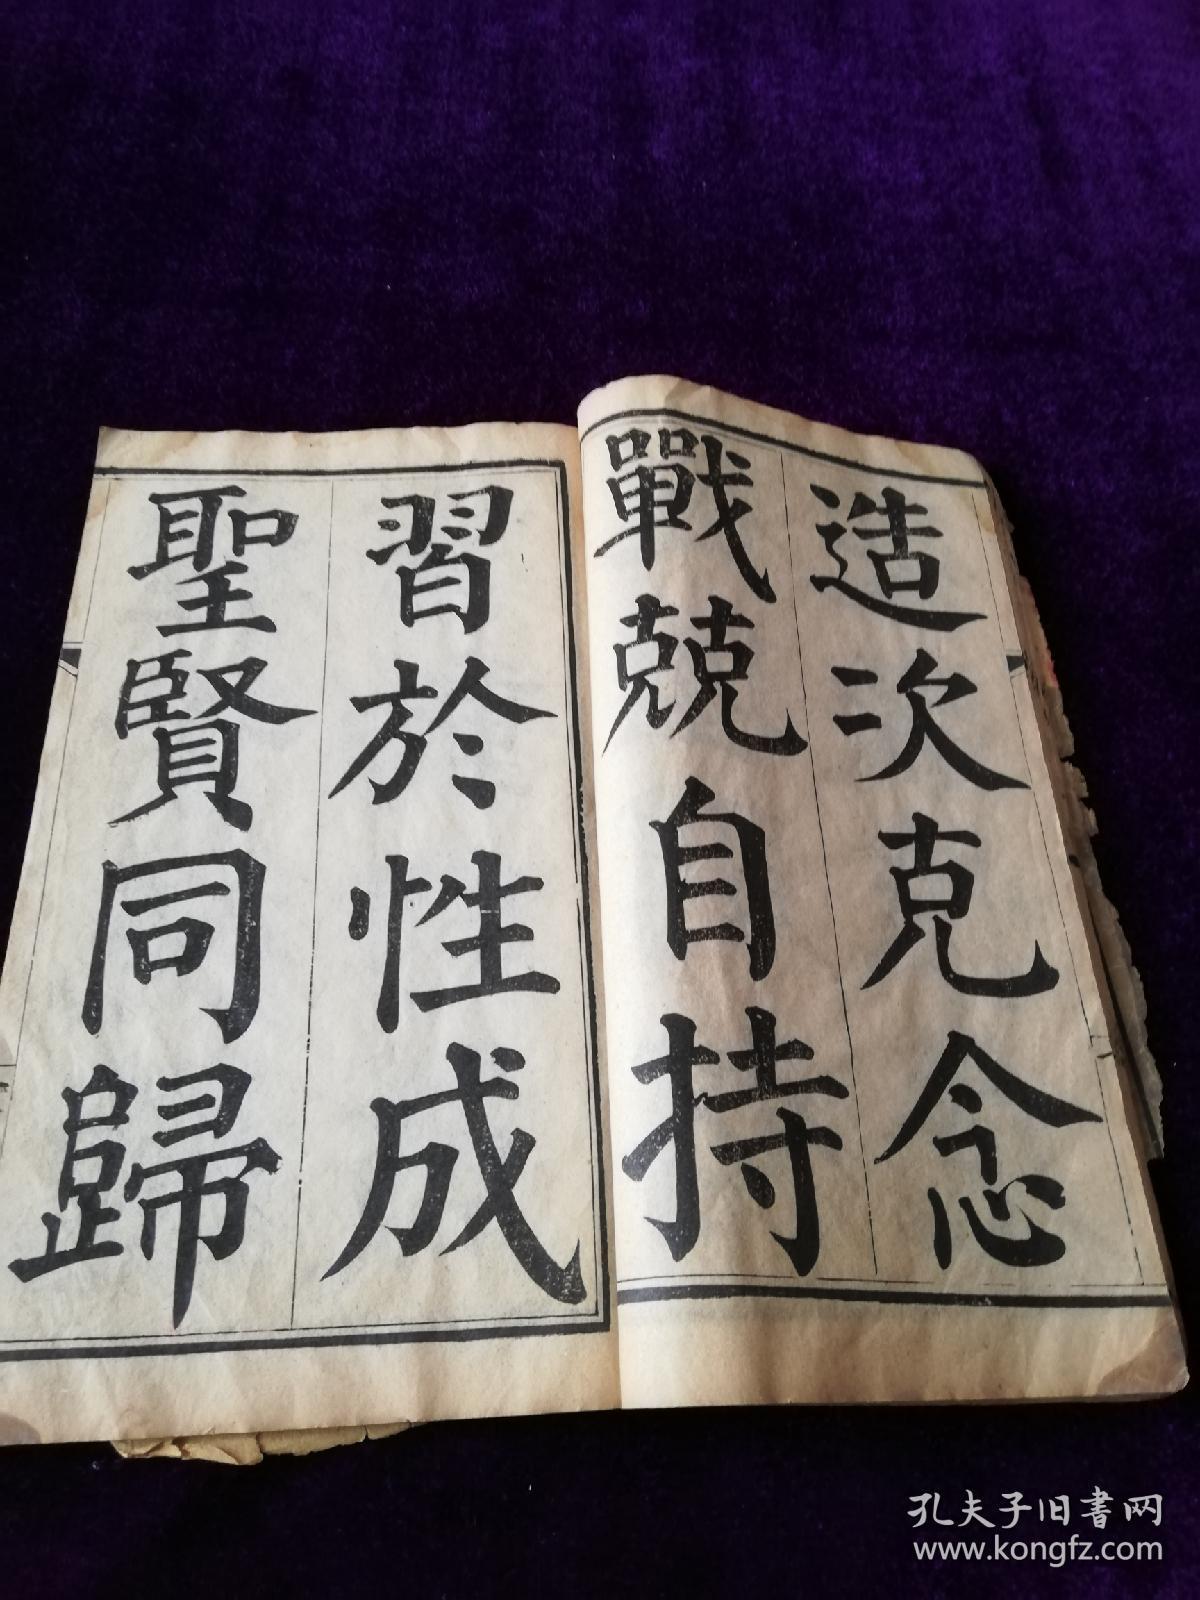 造次克念
戰兢自持
習於性成
聖賢同歸
孔夫子旧書网
www.kongfz.com